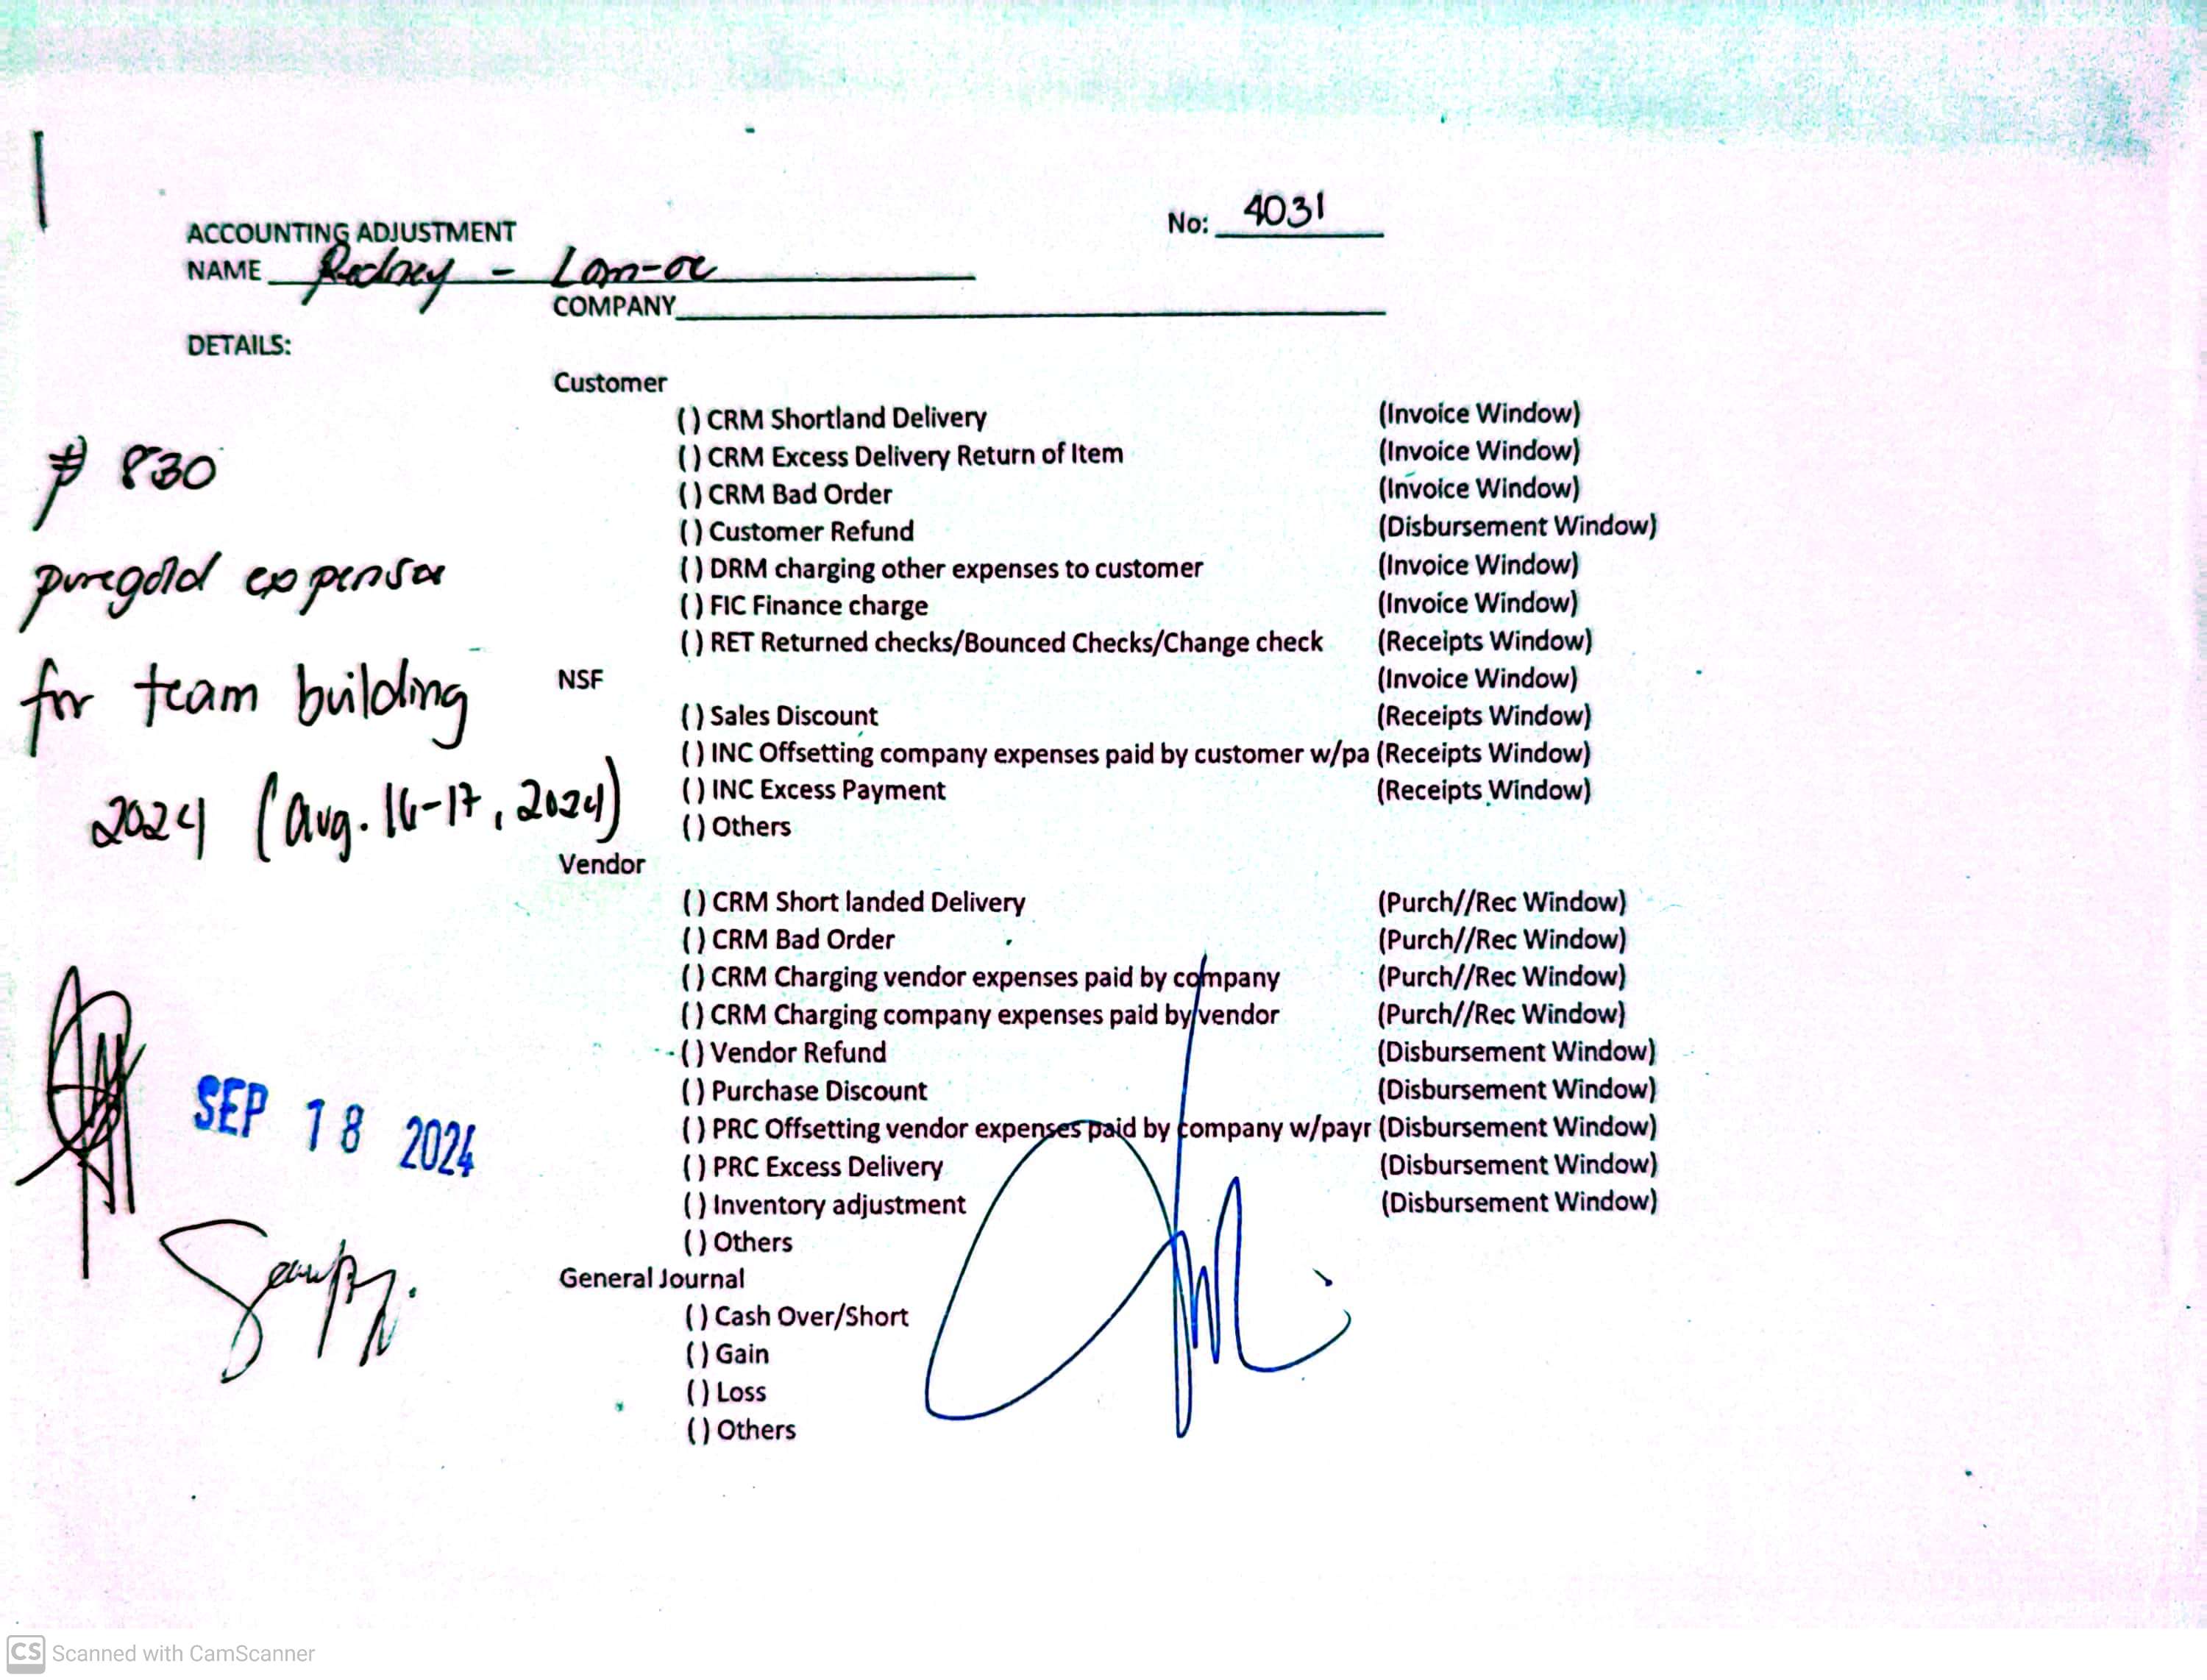 No: 4031
ACCOUNTING ADJUSTMENT
NAME Rodney - Lam-oc
COMPANY
DETAILS:
Customer
( ) CRM Shortland Delivery (Invoice Window)
( ) CRM Excess Delivery Return of Item (Invoice Window)
( ) CRM Bad Order (Invoice Window)
( ) Customer Refund (Disbursement Window)
( ) DRM charging other expenses to customer (Invoice Window)
( ) FIC Finance charge (Invoice Window)
( ) RET Returned checks/Bounced Checks/Change check (Receipts Window)
NSF (Invoice Window)
( ) Sales Discount (Receipts Window)
( ) INC Offsetting company expenses paid by customer w/pa (Receipts Window)
( ) INC Excess Payment (Receipts Window)
( ) Others
Vendor
( ) CRM Short landed Delivery (Purch//Rec Window)
( ) CRM Bad Order (Purch//Rec Window)
( ) CRM Charging vendor expenses paid by company (Purch//Rec Window)
( ) CRM Charging company expenses paid by vendor (Purch//Rec Window)
( ) Vendor Refund (Disbursement Window)
( ) Purchase Discount (Disbursement Window)
( ) PRC Offsetting vendor expenses paid by company w/payr (Disbursement Window)
( ) PRC Excess Delivery (Disbursement Window)
( ) Inventory adjustment (Disbursement Window)
( ) Others
General Journal
( ) Cash Over/Short
( ) Gain
( ) Loss
( ) Others
₱ 830
puregold expense
for team building
2024 (aug. 16-17, 2024)
SEP 18 2024
CS Scanned with CamScanner